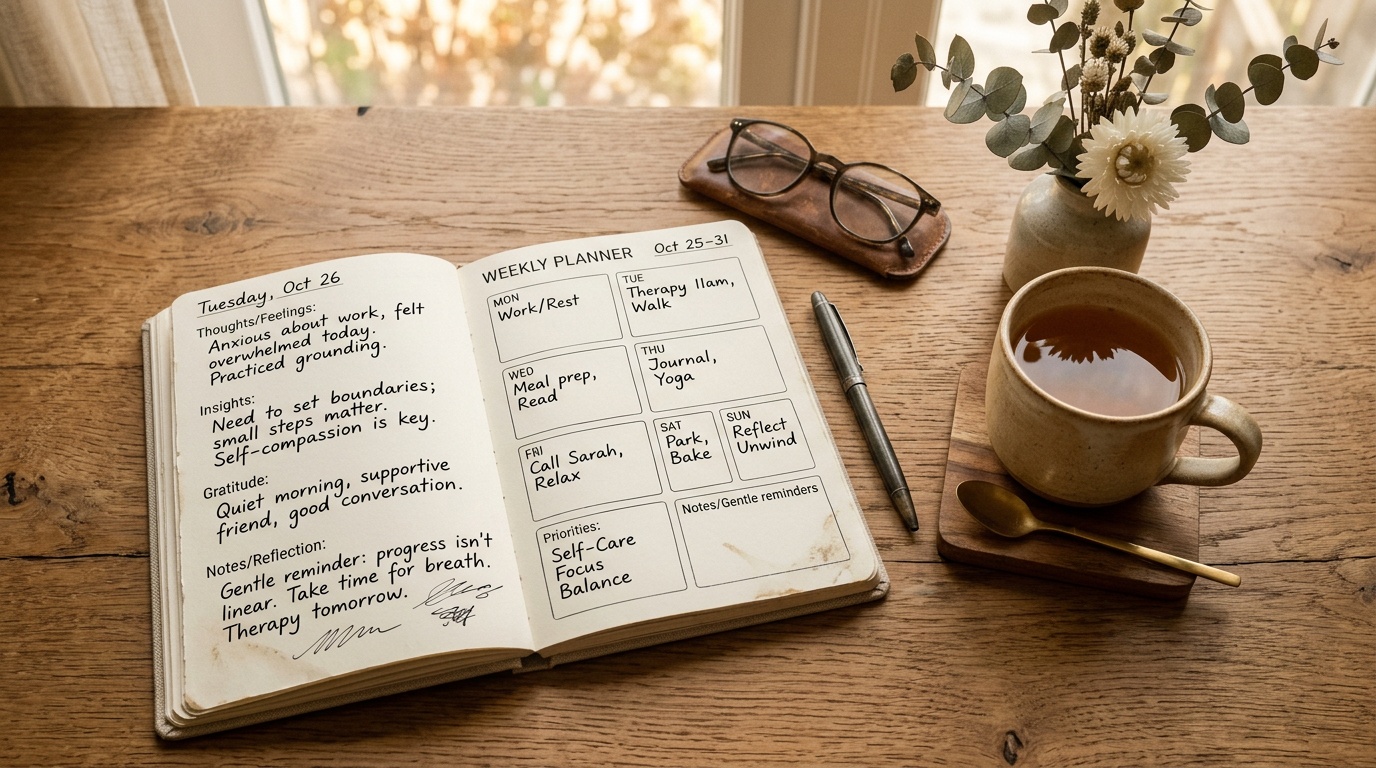 Tuesday, Oct 26
Thoughts/Feelings:
Anxious about work, felt
overwhelmed today.
Practiced grounding.
Insights:
Need to set boundaries;
small steps matter.
Self-compassion is key.
Gratitude:
Quiet morning, supportive
friend, good conversation.
Notes/Reflection:
Gentle reminder: progress isn't
linear. Take time for breath.
Therapy tomorrow.
WEEKLY PLANNER
Oct 25-31
MON
Work/Rest
TUE
Therapy 11am,
Walk
WED
Meal prep,
Read
THU
Journal,
Yoga
FRI
Call Sarah,
Relax
SAT
Park,
Bake
SUN
Reflect
Unwind
Priorities:
Self-Care
Focus
Balance
Notes/Gentle reminders